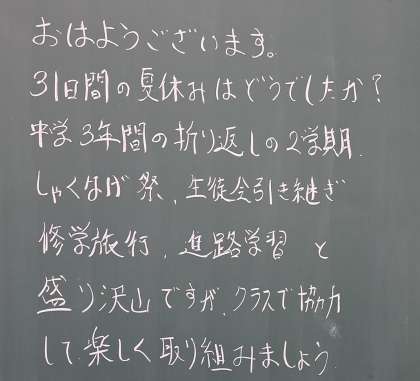 おはようございます。
31日間の夏休みはどうでしたか?
中学3年間の折り返しの2学期.
しゃくなげ祭、生徒会引き継ぎ
修学旅行、進路学習と
盛り沢山ですが、クラスで協力
して楽しく取り組みましょう